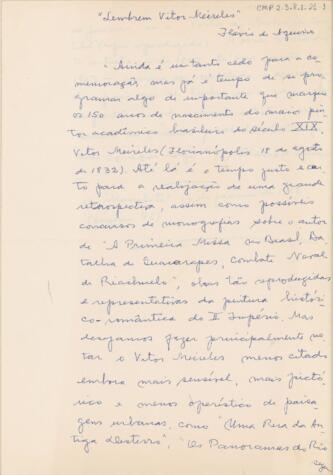 CMP 2.3.8.1.21-1
"Lembrem Vitor Meireles"
Flávio de Aquino
"Ainda é um tanto cedo para a co-
memoração, mas já é tempo de se pro-
gramar algo de importante que marque
os 150 anos de nascimento do maior pin-
tor acadêmico brasileiro do século XIX,
Vitor Meireles (Florianópolis 18 de agosto
de 1832). Até lá é o tempo justo e cer-
to para a realização de uma grande
retrospectiva, assim como possíveis
concursos de monografias sobre o autor
de "A Primeira Missa no Brasil, Ba-
talha de Guararapes, Combate Naval
de Riachuelo", obras tão reproduzidas
e representativas da pintura históri-
co-romântica do II Império. Mas
desejamos fazer principalmente no-
tar o Vitor Meireles menos citado
embora mais sensível, mais pictó-
rico e menos operístico de paisa-
gens urbanas, como "Uma Rua da An-
tiga Desterro", "Os Panoramas do Rio